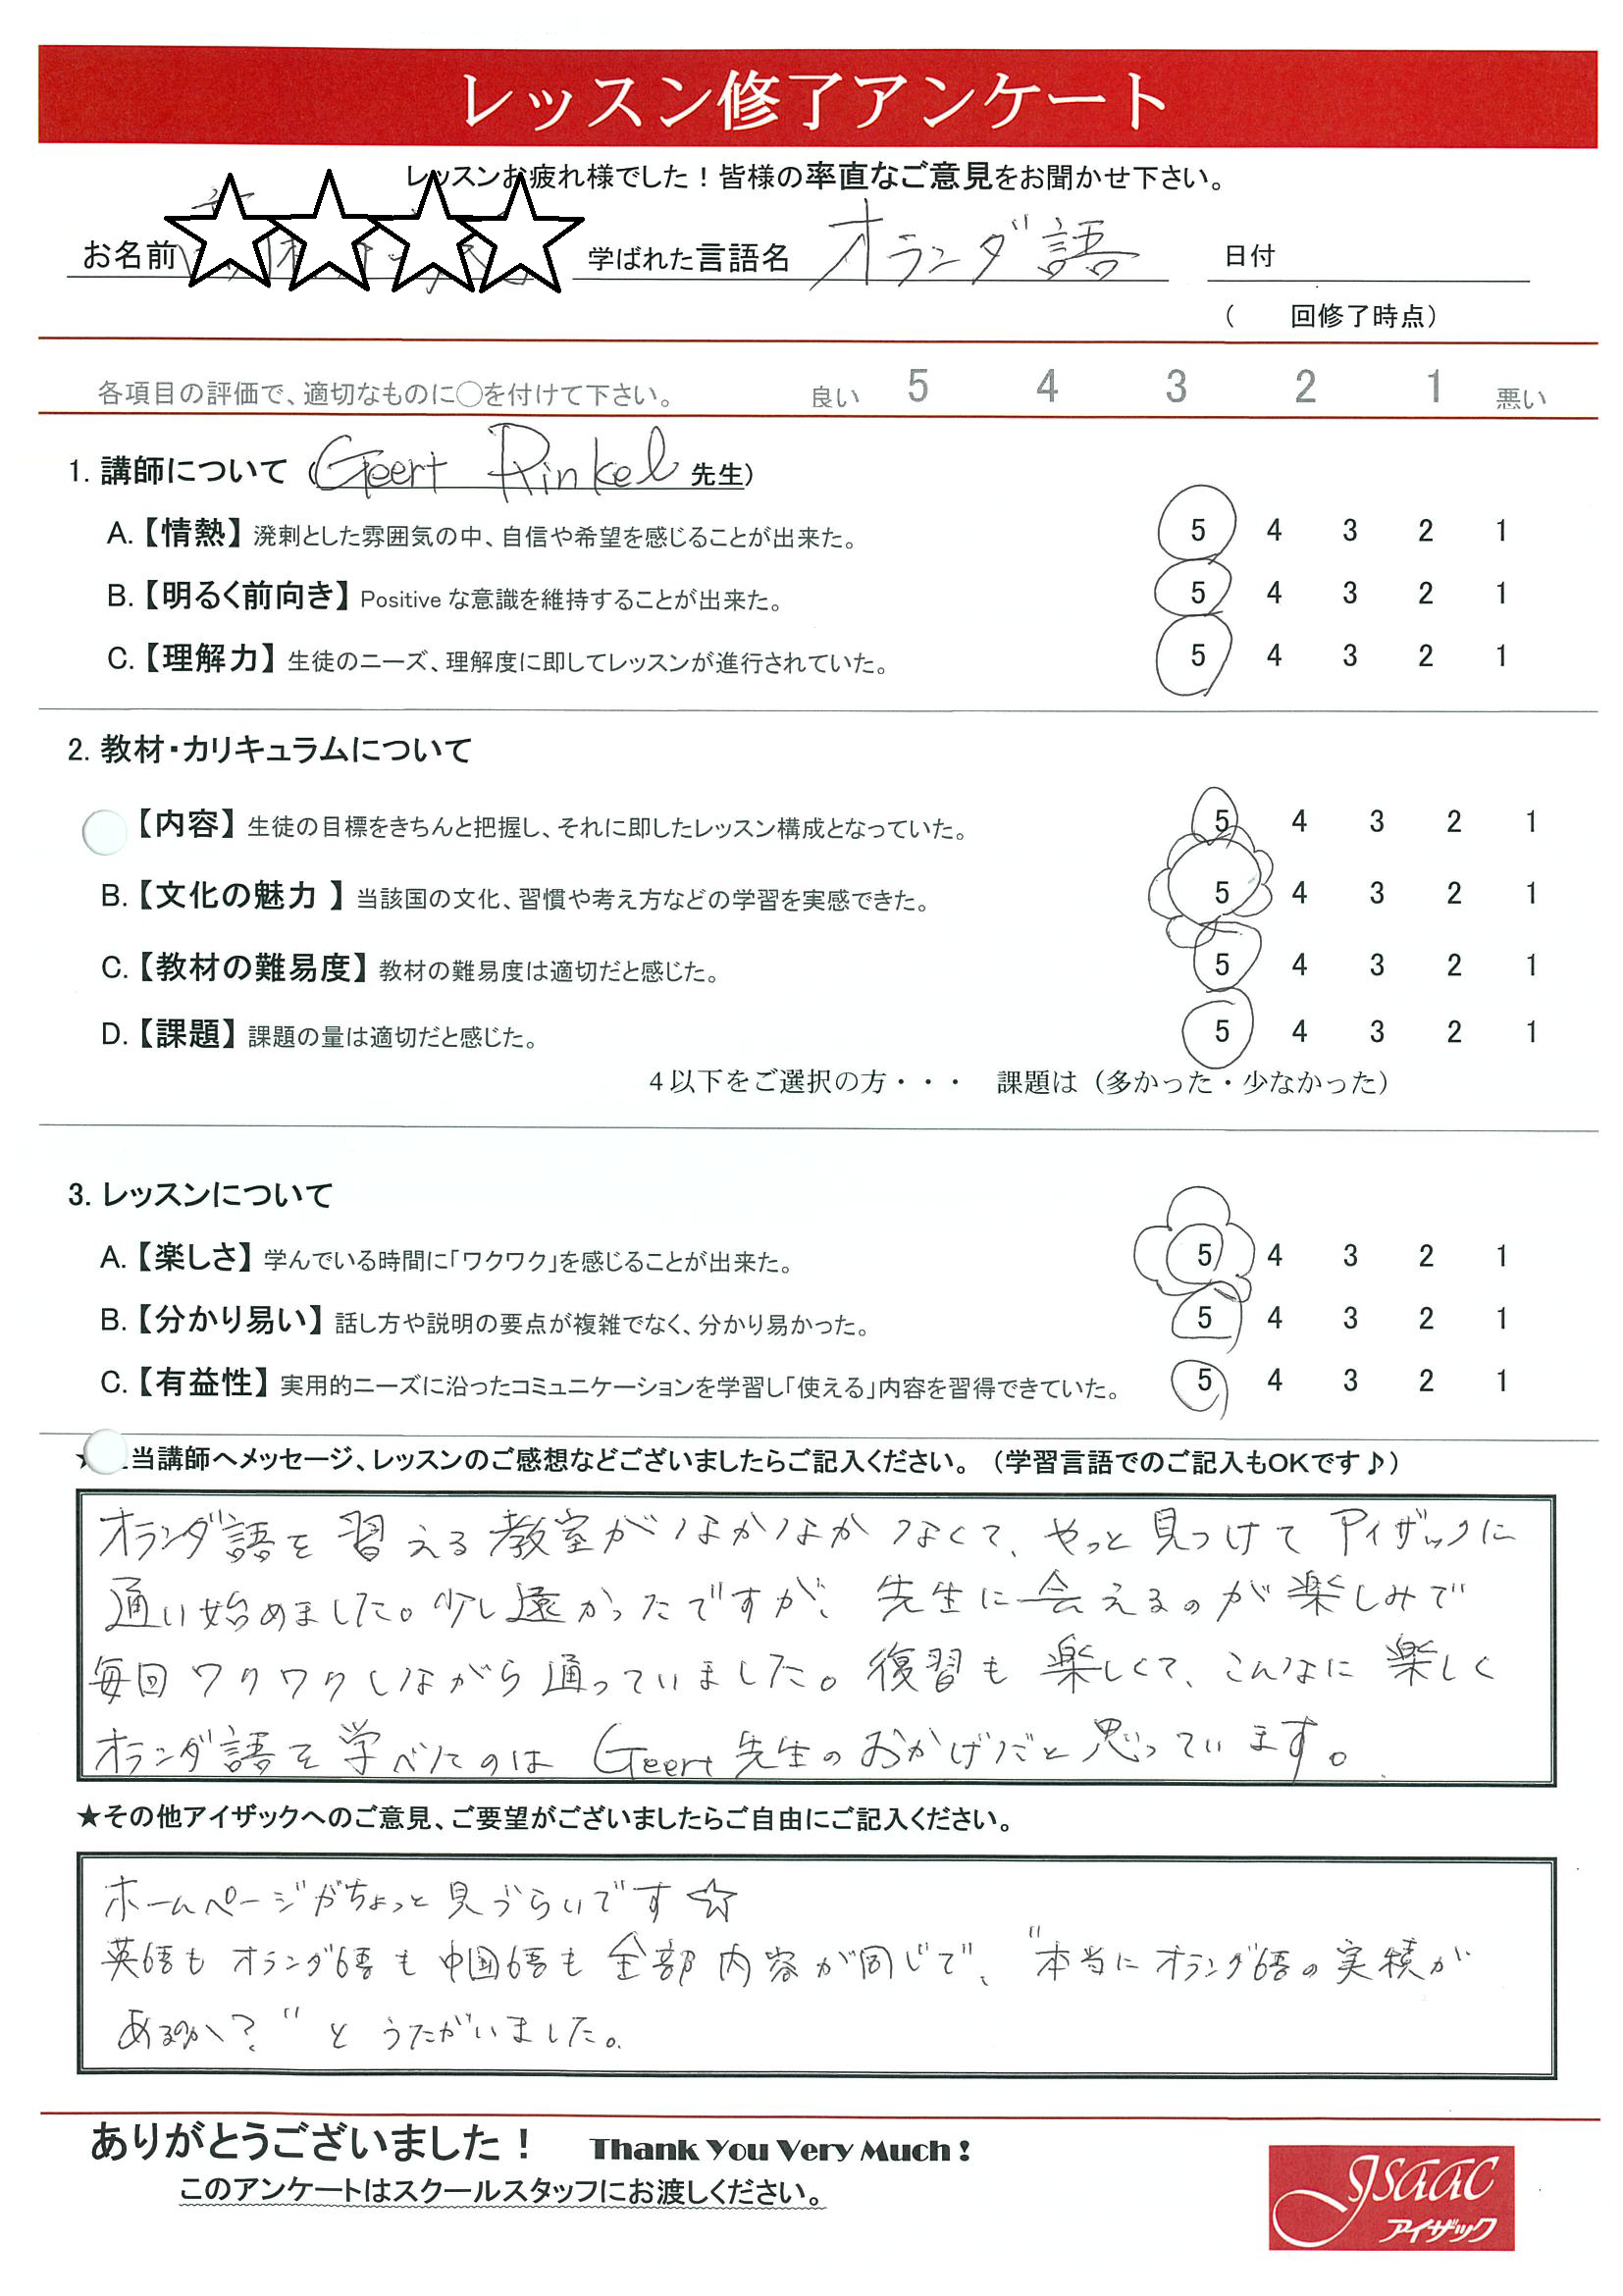 レッスン修了アンケート
レッスンお疲れ様でした！皆様の率直なご意見をお聞かせ下さい。
お名前 学ばれた言語名 オランダ語 日付
( 回修了時点)
各項目の評価で、適切なものに○を付けて下さい。 良い 5 4 3 2 1 悪い
1. 講師について (Geert Rinkel 先生)
A.【情熱】溌剌とした雰囲気の中、自信や希望を感じることが出来た。 5 4 3 2 1
B.【明るく前向き】Positive な意識を維持することが出来た。 5 4 3 2 1
C.【理解力】生徒のニーズ、理解度に即してレッスンが進行されていた。 5 4 3 2 1
2. 教材・カリキュラムについて
【内容】生徒の目標をきちんと把握し、それに即したレッスン構成となっていた。 5 4 3 2 1
B.【文化の魅力 】当該国の文化、習慣や考え方などの学習を実感できた。 5 4 3 2 1
C.【教材の難易度】教材の難易度は適切だと感じた。 5 4 3 2 1
D.【課題】課題の量は適切だと感じた。 5 4 3 2 1
4以下をご選択の方・・・ 課題は（多かった・少なかった）
3. レッスンについて
A.【楽しさ】学んでいる時間に「ワクワク」を感じることが出来た。 5 4 3 2 1
B.【分かり易い】話し方や説明の要点が複雑でなく、分かり易かった。 5 4 3 2 1
C.【有益性】実用的ニーズに沿ったコミュニケーションを学習し「使える」内容を習得できていた。 5 4 3 2 1
当講師へメッセージ、レッスンのご感想などございましたらご記入ください。（学習言語でのご記入もOKです♪）
オランダ語を習える教室がなかなかなくて、やっと見つけてアイザックに
通い始めました。少し遠かったですが、先生に会えるのが楽しみで
毎回ワクワクしながら通っていました。復習も楽しくて、こんなに楽しく
オランダ語を学べたのはGeert先生のおかげだと思っています。
★その他アイザックへのご意見、ご要望がございましたらご自由にご記入ください。
ホームページがちょっと見づらいです☆
英語もオランダ語も中国語も全部内容が同じで、"本当にオランダ語の実績が
あるのか？"とうたがいました。
ありがとうございました！ Thank You Very Much！
このアンケートはスクールスタッフにお渡しください。
ISAAC
アイザック